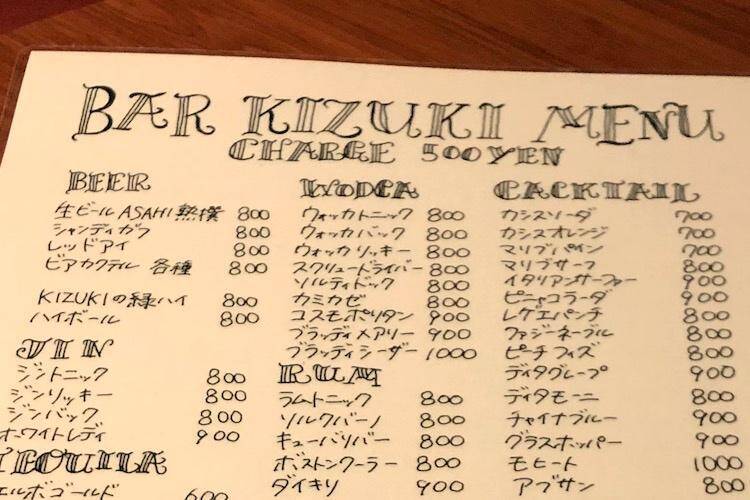 BAR KIZUKI MENU
CHARGE 500 YEN
BEER
生ビール ASAHI 熟撰 800
シャンディガフ 800
レッドアイ 800
ビアカクテル 各種 800
KIZUKIの緑ハイ 800
ハイボール 800
JIN
ジントニック 800
ジンリッキー 800
ジンバック 800
ホワイトレディ 900
TEQUILA
エルボゴールド 600
WODCA
ウォッカトニック 800
ウォッカバック 800
ウォッカリッキー 800
スクリュードライバー 800
ソルティドッグ 800
カミカゼ 800
コスモポリタン 900
ブラッディメアリー 900
ブラッディシーザー 1000
RUM
ラムトニック 800
ソルクバーノ 800
キューバリバー 800
ボストンクーラー 800
ダイキリ 900
CACKTAIL
カシスソーダ 700
カシスオレンジ 700
マリブパイン 700
マリブサーフ 800
イタリアンサーファー 900
ピニャコラーダ 900
レゲエパンチ 800
ファジーネーブル 800
ピーチフィズ 800
ディタグレープ 900
ディタモーニ 800
チャイナブルー 900
グラスホッパー 900
モヒート 1000
アブサン 800